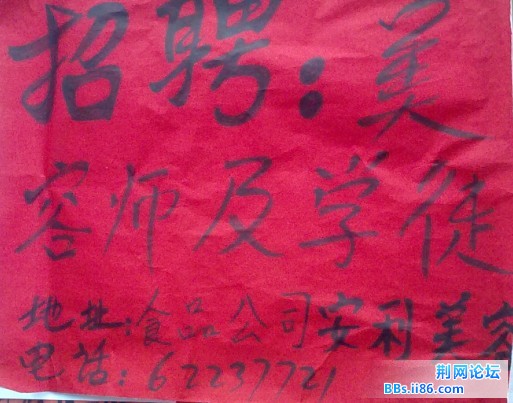 招聘：美
容师及学徒
地址：食品公司安利美容
电话：62237721
荆网论坛
BBs.ii86.com